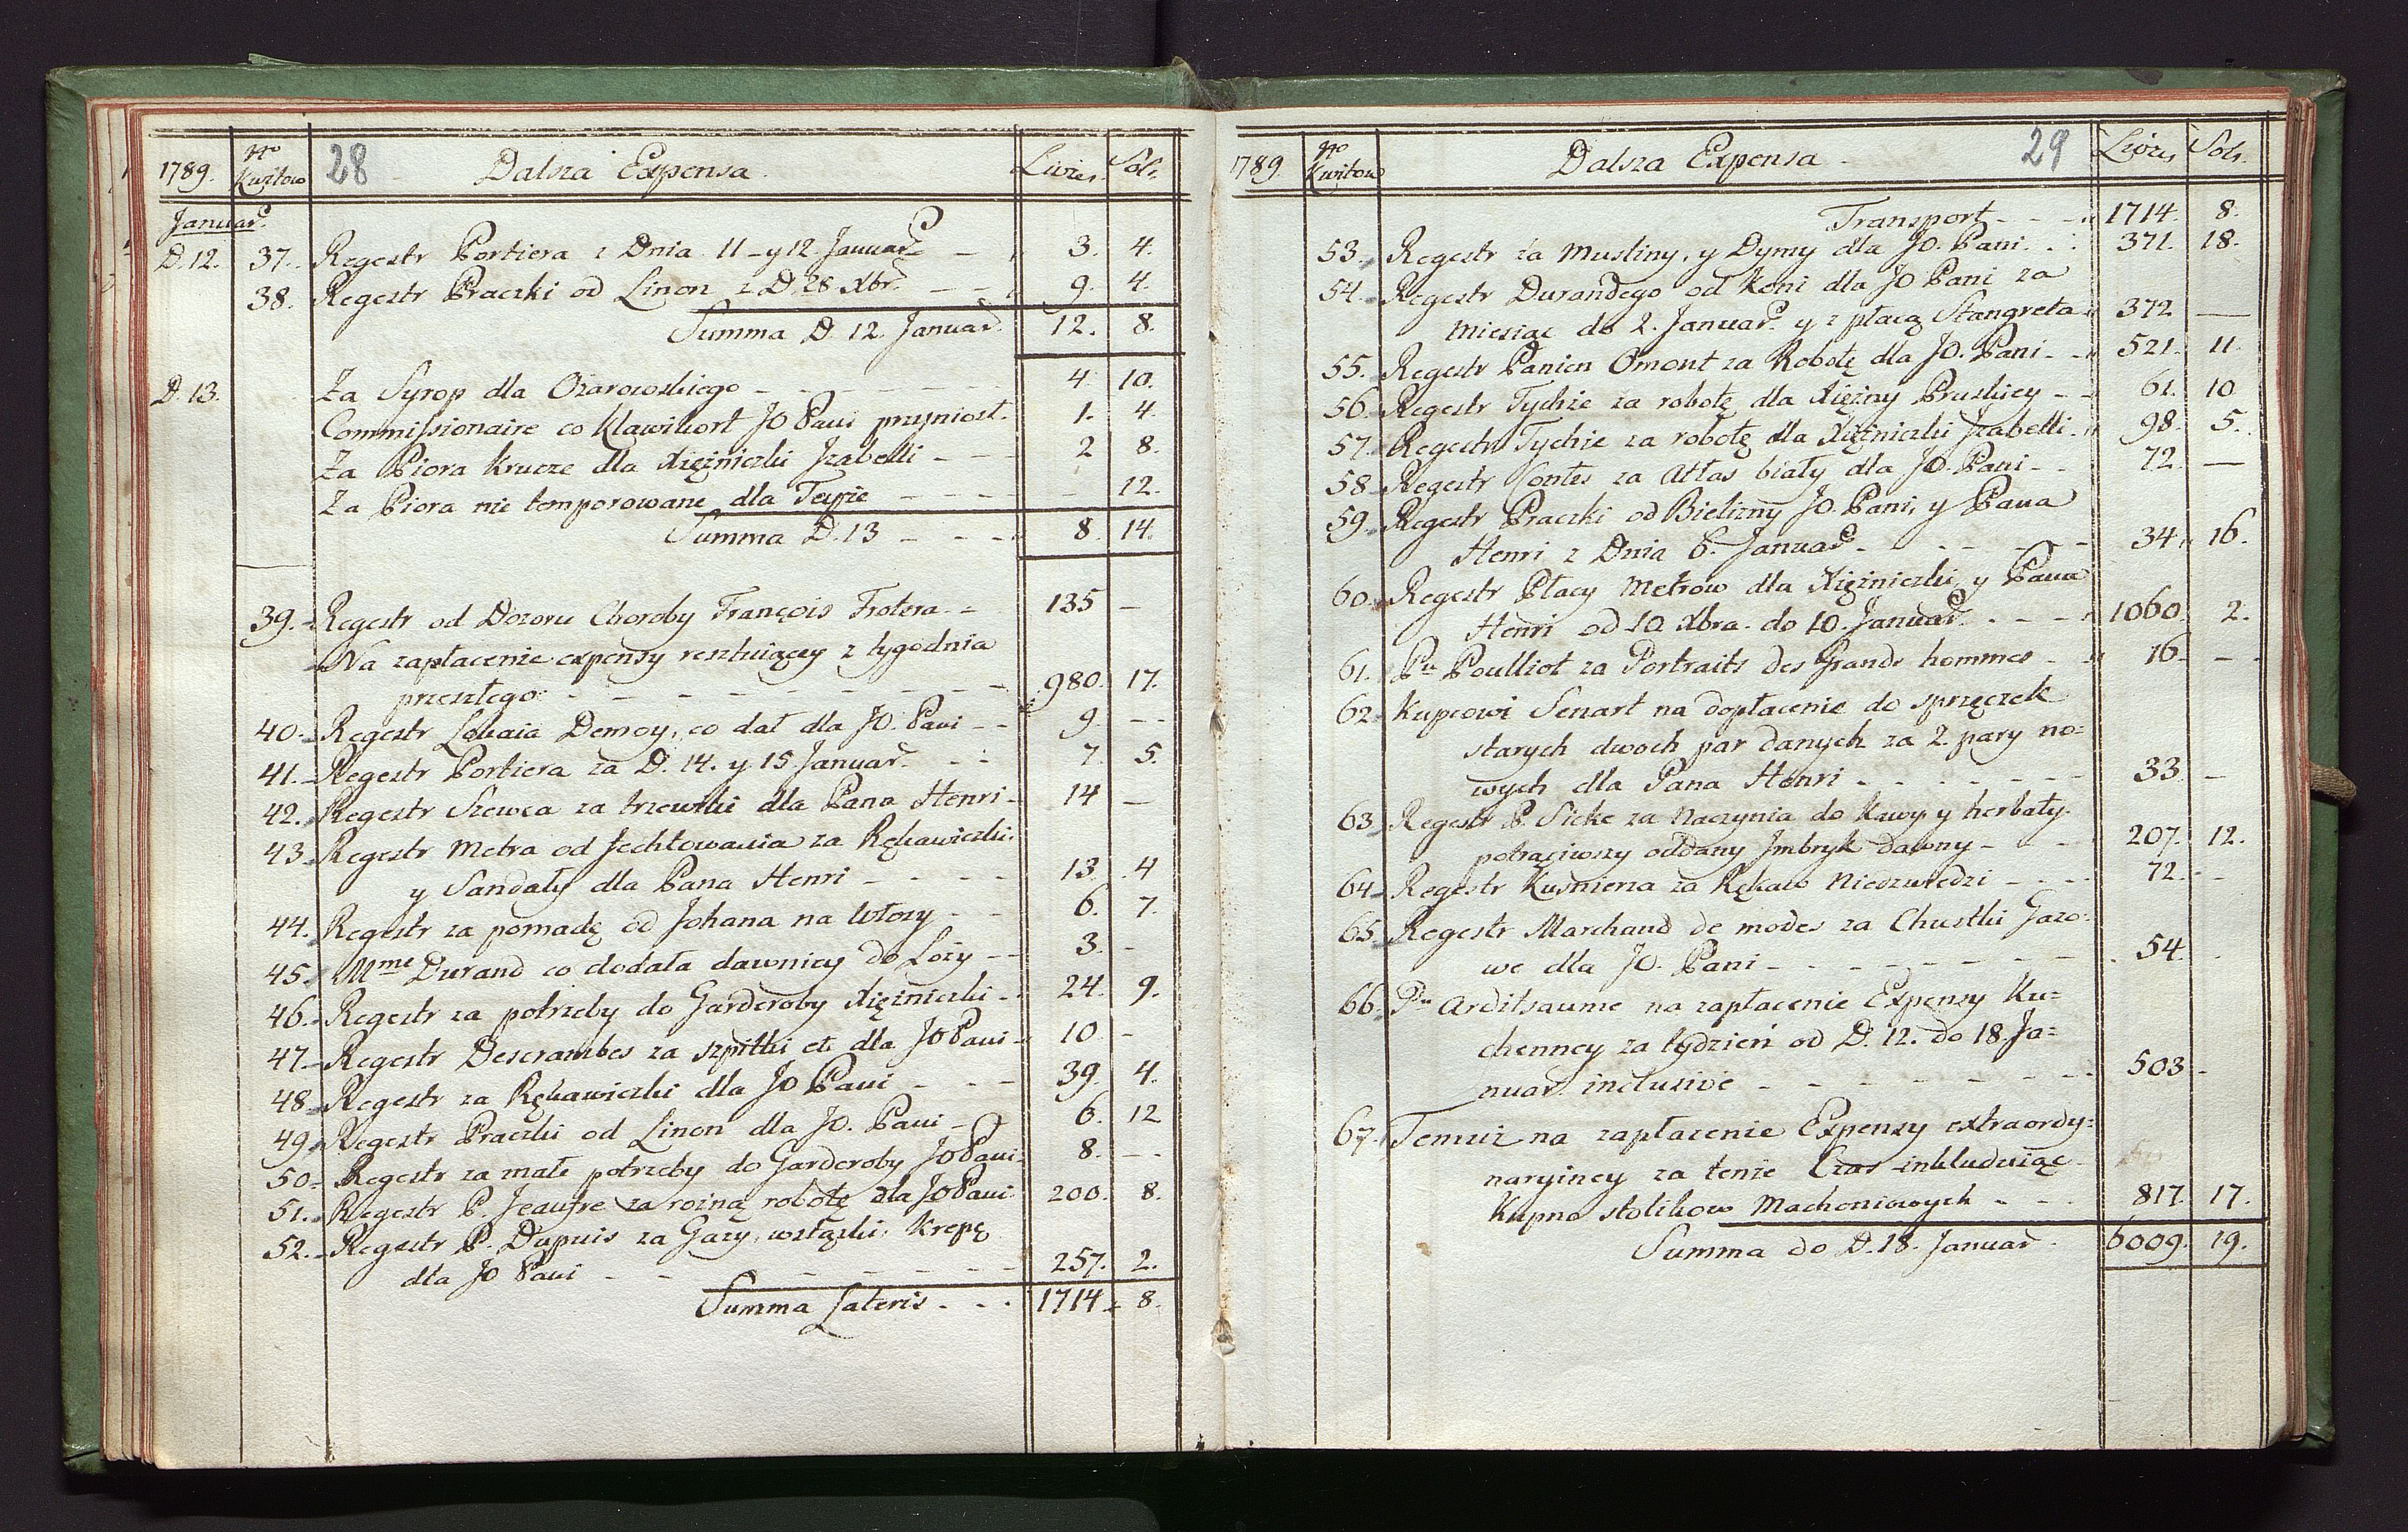 1789. No Kwitow 28 Dalsza Expensa. Livres. Sols.
Januar.
D. 12. 37. Regestr Portiera z Dnia 11 y 12 Januar. 3. 4.
38. Regestr Praczki od Linon z D. 28 Xbr. 9. 4.
Summa D. 12. Januar. 12. 8.
D. 13. Za Syrop dla Ożarowskiego 4 10.
Commissionaire co Klawikort JO Pani przyniosł. 1. 4.
Za Piora krucze dla Xiężniczki Izabelli 2 8.
Za Piora nie temporowane dla Teyże 12.
Summa D. 13 8. 14.
39. Regestr od Dozoru Choroby François Frotera 135 -
Na zapłacenie expensy resztuiącey z tygodnia
przeszłego 980. 17.
40. Regestr Lokaia Demoy, co dał dla JO. Pani 9. -
41. Regestr Portiera za D. 14. y 15 Januar. 7. 5.
42. Regestr Szewca za trzewiki dla Pana Henri 14 -
43. Regestr Metra od fechtowania za Rękawiczki
y Sandały dla Pana Henri 13. 4
44. Regestr za pomadę od Johana na Włosy 6. 7.
45. Mme Durand co dodała dawniey do Loży 3. -
46. Regestr za potrzeby do Garderoby Xiężniczki 24. 9.
47. Regestr Descrambes za szpilki etc dla JO Pani 10 -
48. Regestr za Rękawiczki dla JO Pani 39. 4.
49. Regestr Praczki od Linon dla JO. Pani 6. 12
50. Regestr za małe potrzeby do Garderoby JO Pani 8. -
51. Regestr P. Jeaufre za rożną robotę dla JO Pani 200. 8.
52. Regestr P. Dupuis za Gazy, wstążki, Krepę
dla JO Pani 257. 2.
Summa Lateris 1714. 8.
1789 No Kwitow Dalsza Expensa 29 Livres Sols.
Transport 1714. 8.
53. Regestr za Musliny, y Dymy dla JO. Pani 371. 18.
54. Regestr Durandego od Koni dla JO Pani za
miesiąc do 2. Januar. y z płacą Stangreta 372 -
55. Regestr Panien Omont za Robotę dla JO. Pani 521. 11.
56. Regestr Tychże za robotę dla Xiężny Pruskiey 61. 10
57. Regestr Tychże za robotę dla Xiężniczki Izabelli 98. 5.
58. Regestr Contes za Atłas biały dla JO. Pani 72. -
59. Regestr Praczki od Bielizny JO. Pani, y Pana
Henri z Dnia 6. Januar. 34. 16.
60. Regestr Płacy Metrow dla Xiężniczki y Pana
Henri od 10 Xbra. do 10. Januar. 1060. 2.
61. Pu Poulliot za Portraits des Grands hommes 16 -
62. Kupcowi Senart na dopłacenie do sprzęczek
starych dwoch par danych za 2. pary no=
wych dla Pana Henri 33. -
63. Regestr P. Sicke za Naczynia do Kawy y herbaty
potrąciwszy oddany Imbryk dawny 207. 12.
64. Regestr Kuśnierza za Rękaw Niedzwiedzi 72. -
65. Regestr Marchand de modes za Chustki Gazo=
we dla JO. Pani 54.
66. Pu Arditsaume na zapłacenie Expensy Ku=
chenney za tydzień od D. 12. do 18. Ja=
nuar. inclusive 503 -
67. Temuż na zapłacenie Expensy extraordy=
naryiney za tenże Czas inkluduiąc
Kupno stolikow Machoniowych 817. 17.
Summa do D. 18. Januar. 6009. 19.